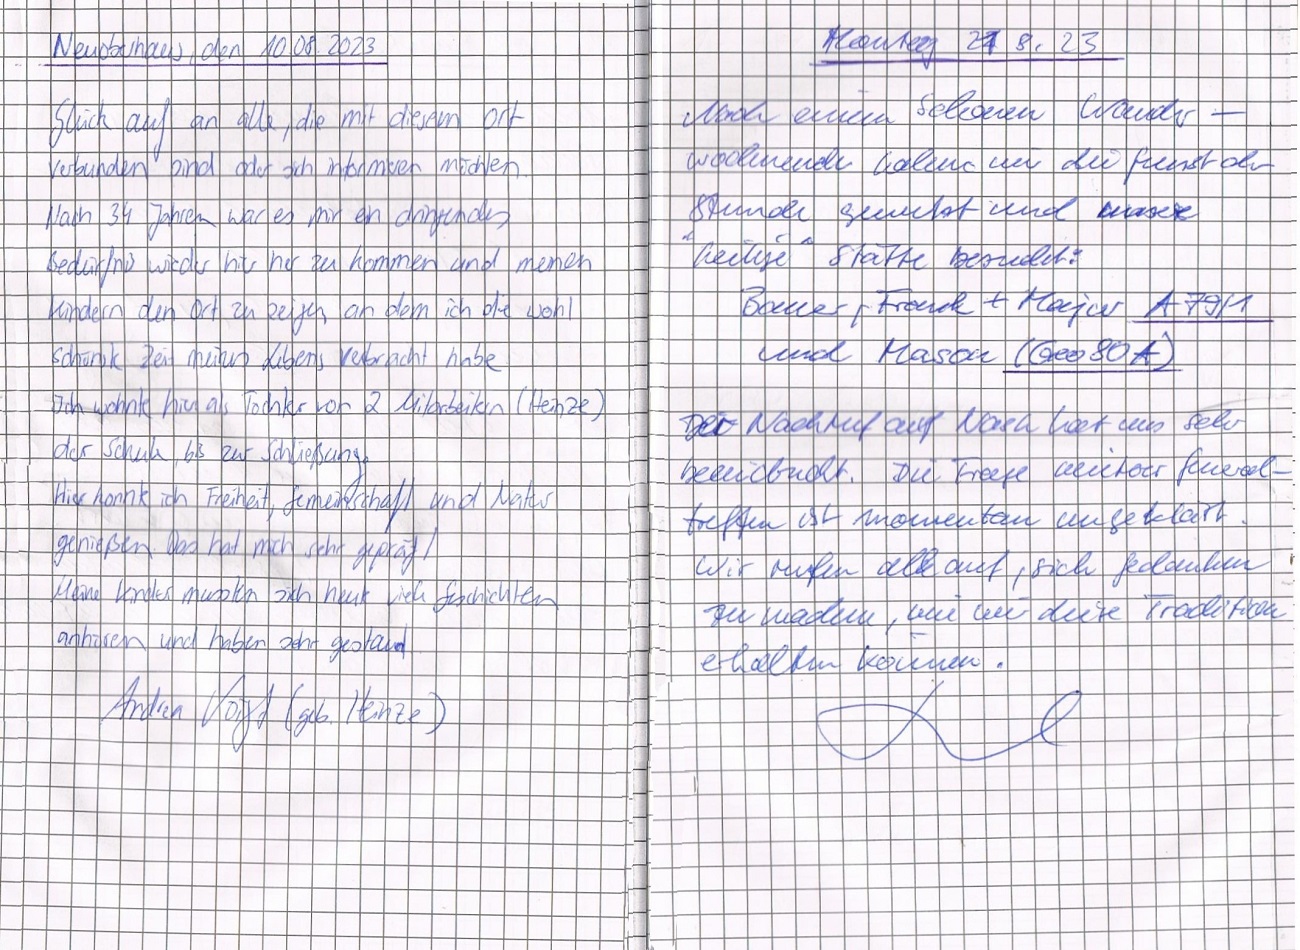 Neuoberhaus, den 10.08.2023
Glück auf an alle, die mit diesem Ort
verbunden sind oder sich informieren möchten.
Nach 34 Jahren war es mir ein dringendes
Bedürfnis wieder hier her zu kommen und meinen
Kindern den Ort zu zeigen, an dem ich die wohl
schönste Zeit meines Lebens verbracht habe.
Ich wohnte hier als Tochter von 2 Mitarbeitern (Heinze)
der Schule, bis zur Schließung.
Hier konnte ich Freiheit, Gemeinschaft und Natur
genießen. Das hat mich sehr geprägt!
Meine Kinder mussten sich heute viele Geschichten
anhören und haben sehr gestaunt.
Andrea Voigt (geb. Heinze)
Montag 21 8. 23
Nach einem schönen Wander-
wochenende haben wir die Gunst der
Stunde genutzt und unsere
"heilige" Stätte besucht:
Bauer, Frank + Major A79/1
und Mason (Geo80A)
Der Nachruf auf Noach hat uns sehr
beeindruckt. Die Frage weiterer General-
treffen ist momentan ungeklärt.
Wir rufen alle auf, sich Gedanken
zu machen, wie wir diese Tradition
erhalten können.